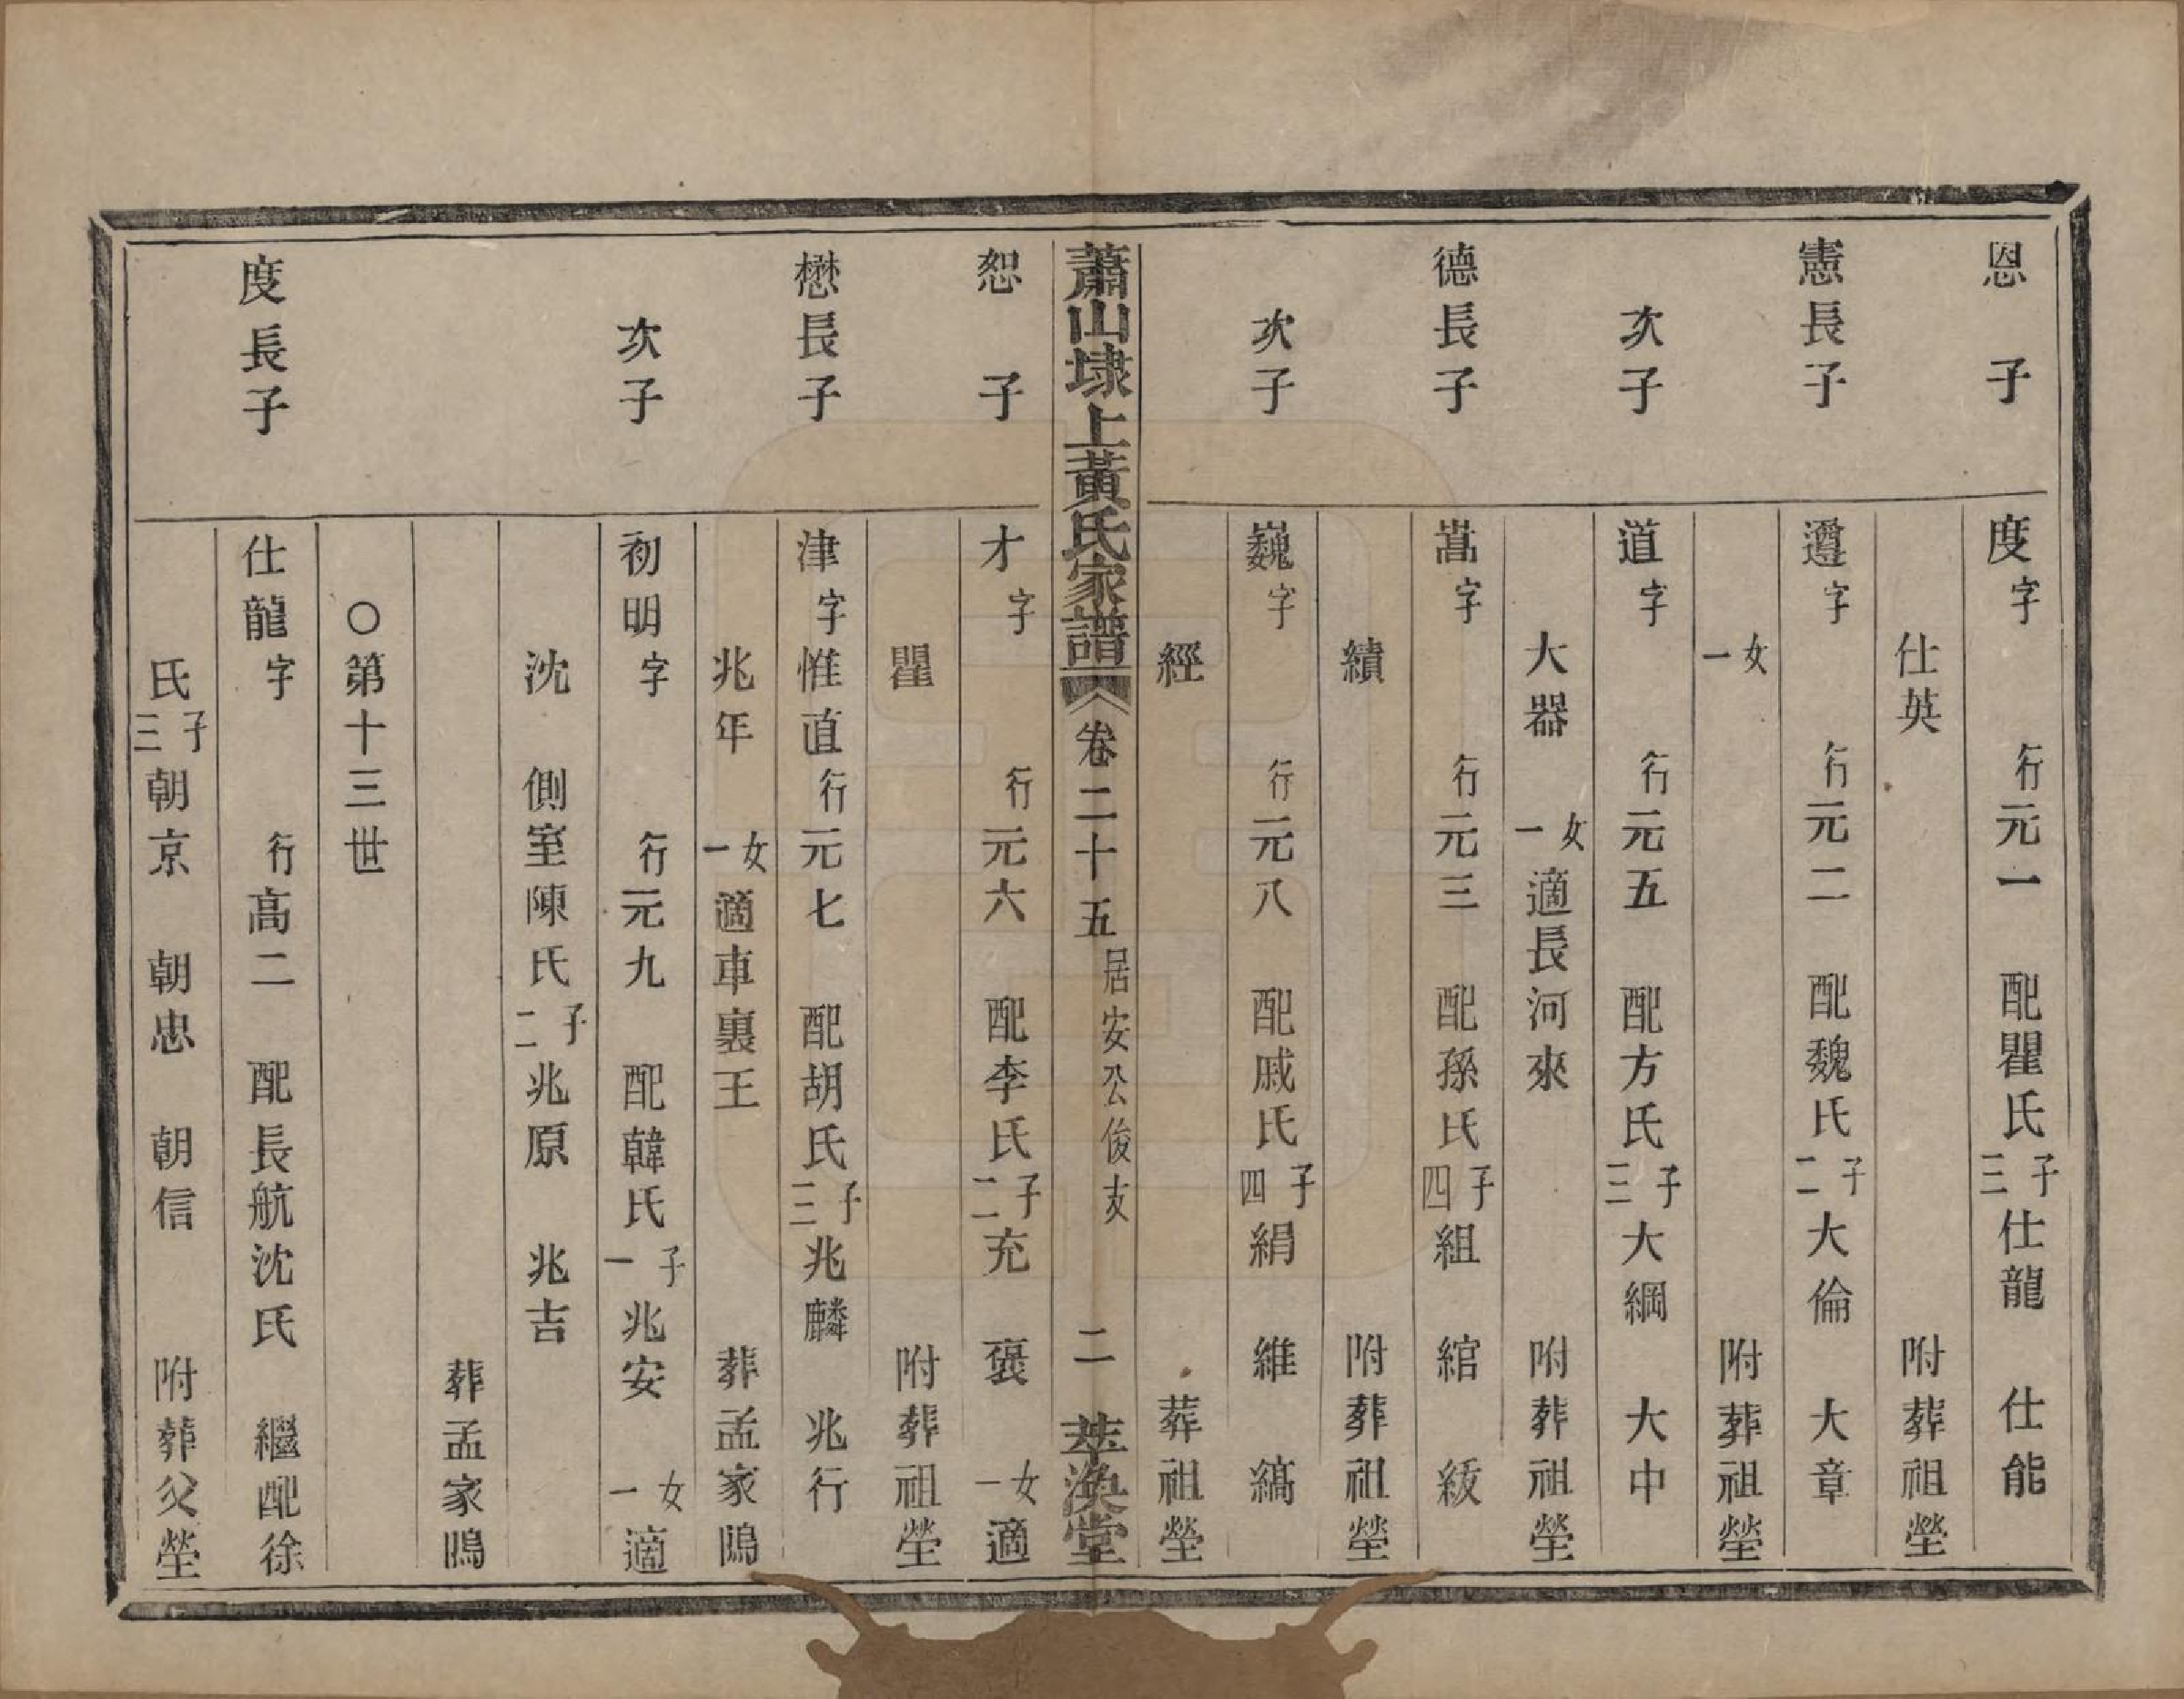 恩　子　度字　行元一　配瞿氏子三仕龍　仕能
仕英　附葬祖塋
憲長子　遵字　行元二　配魏氏子二大倫　大章
女一　附葬祖塋
次子　道字　行元五　配方氏子三大綱　大中
大器　女一適長河來　附葬祖塋
德長子　嵩字　行元三　配孫氏子四組　綰　綬
續　附葬祖塋
次子　巍字　行元八　配戚氏子四絹　維　縞
經　葬祖塋
蕭山埭上黃氏家譜　卷二十五　居安公俊支　二　萃渙堂
恕　子　才字　行元六　配李氏子二充　褎　女一適
瞿　附葬祖塋
懋長子　津字惟直行元七　配胡氏子三兆麟　兆行
兆年　女一適車裏王　葬孟家隝
次子　初明字　行元九　配韓氏子一兆安　女一適
沈　側室陳氏子二兆原　兆吉
葬孟家隝
〇第十三世
度長子　仕龍字　行高二　配長航沈氏　繼配徐
氏子三朝京　朝忠　朝信　附葬父塋